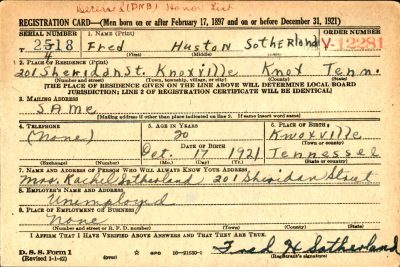 Deceased (DNB) Honor List
REGISTRATION CARD—(Men born on or after February 17, 1897 and on or before December 31, 1921)
SERIAL NUMBER 1. NAME (Print) ORDER NUMBER
T 2518 Fred Huston Sotherland V-12281
4 (First) (Middle) (Last)
2. PLACE OF RESIDENCE (Print)
201 Sheridan St. Knoxville Knox Tenn.
(Number and street) (Town) (County) (State)
[THE PLACE OF RESIDENCE GIVEN ON THE LINE ABOVE WILL DETERMINE LOCAL BOARD
JURISDICTION; LINE 2 OF REGISTRATION CERTIFICATE WILL BE IDENTICAL]
3. MAILING ADDRESS
SAME
[Mailing address if other than place indicated on line 2. If same insert word same]
4. TELEPHONE 5. AGE IN YEARS 6. PLACE OF BIRTH
(None) 20 Knoxville
DATE OF BIRTH (Town or county)
Oct. 17 1921 Tennessee
(Exchange) (Number) (Mo.) (Day) (Yr.) (State or country)
7. NAME AND ADDRESS OF PERSON WHO WILL ALWAYS KNOW YOUR ADDRESS
Mrs. Rachel Sotherland 201 Sheridan Street
8. EMPLOYER'S NAME AND ADDRESS
Unemployed
9. PLACE OF EMPLOYMENT OR BUSINESS
None
(Number and street or R. F. D. number) (Town) (County) (State)
I AFFIRM THAT I HAVE VERIFIED ABOVE ANSWERS AND THAT THEY ARE TRUE.
D. S. S. Form 1 GPO 16—21630-1 Fred H Sotherland
(Revised 1-1-42) (Registrant's signature)